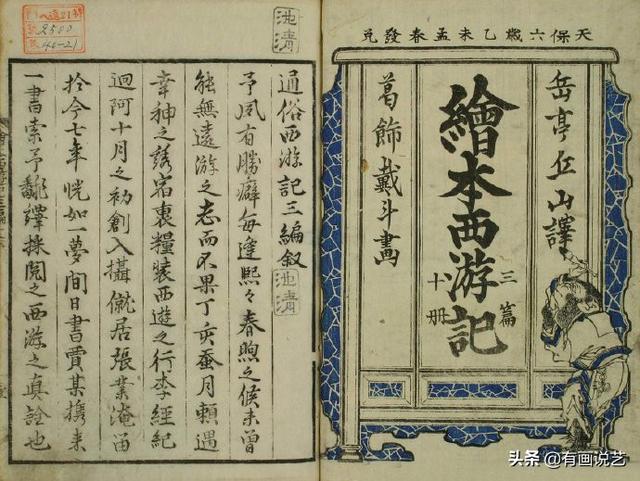 天保六歲乙未孟春發兌
岳亭丘山譯
繪本西游記
三篇
十冊
葛飾戴斗畫
池清
通俗西游記三編叙
池清
予夙有勝癖每逢熙々春煦之候未曾
能無遠游之志而不果丁亥蚕月頼遇
幸神之誘宿裹糧装西遊之行李經紀
迴阿十月之初創入攝僦居張業淹留
於今七年恍如一夢間日書賈某携来
一書索予飜繹採閲之西游之真詮也
2500
40-21
头条 @有画说艺